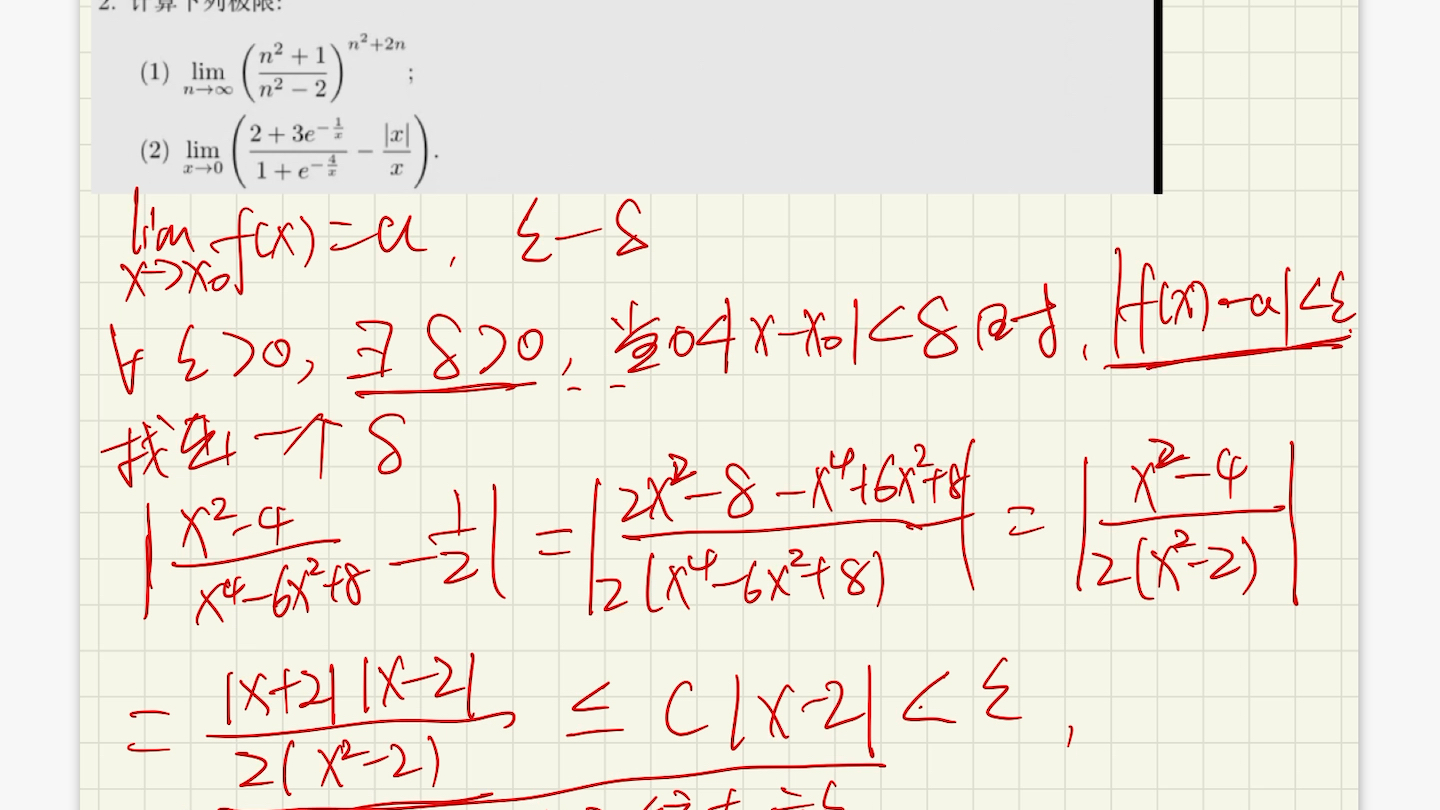 2. 计算下列极限:
(1) lim_{n→∞} ((n² + 1)/(n² − 2))^{n²+2n};
(2) lim_{x→0} ((2 + 3e^{−1/x})/(1 + e^{−4/x}) − |x|/x).
lim_{x→x₀} f(x) = a, ε−δ
∀ ε>0, ∃ δ>0, 当0<|x−x₀|<δ时, |f(x)−a|<ε.
找出一个 δ
|(x²−4)/(x⁴−6x²+8) − 1/2| = |(2x²−8−x⁴+6x²+8)/(2(x⁴−6x²+8))| = |(x²−4)/(2(x²−2))|
= |x+2||x−2|/(2(x²−2)) ≤ C|x−2| < ε,